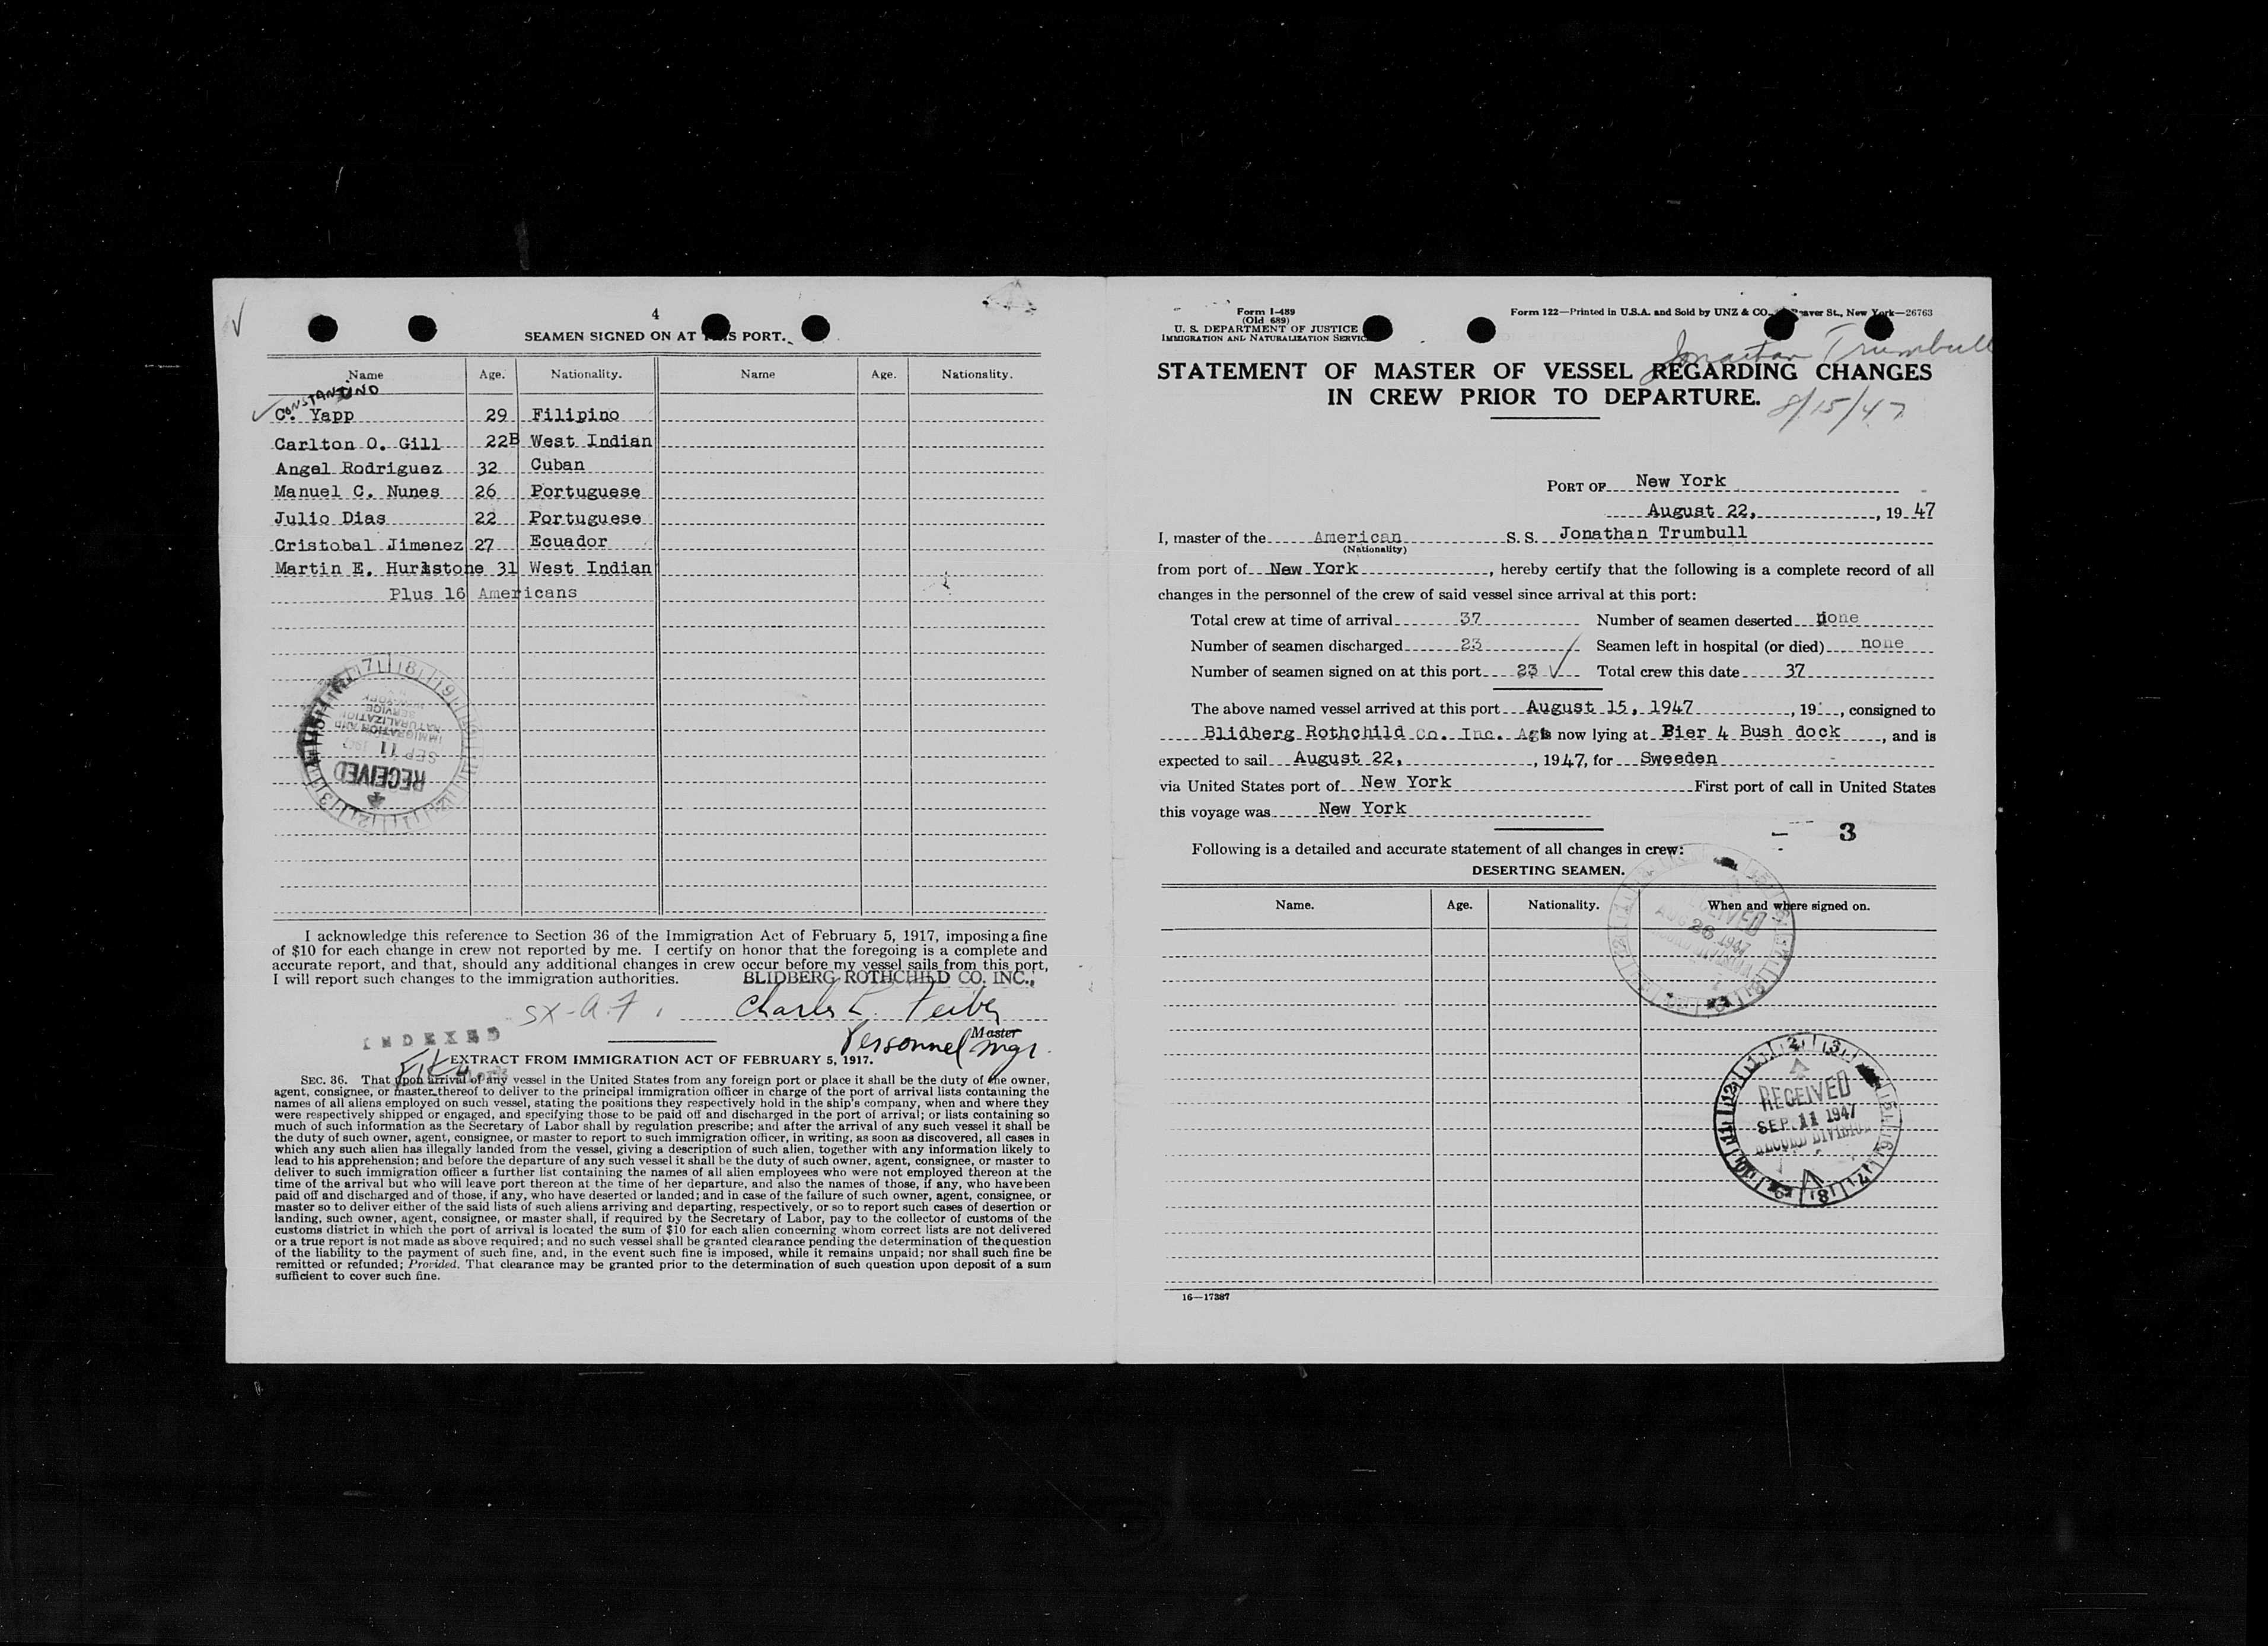 4
SEAMEN SIGNED ON AT S PORT.
Name Age. Nationality. Name Age. Nationality.
CONSTANTINO
C. Yapp 29 Filipino
Carlton O. Gill 22B West Indian
Angel Rodriguez 32 Cuban
Manuel C. Nunes 26 Portuguese
Julio Dias 22 Portuguese
Cristobal Jimenez 27 Ecuador
Martin E. Hurlstone 31 West Indian
Plus 16 Americans
IMMIGRATION AND
NATURALIZATION
SERVICE
SEP 11
RECEIVED
I acknowledge this reference to Section 36 of the Immigration Act of February 5, 1917, imposing a fine
of $10 for each change in crew not reported by me. I certify on honor that the foregoing is a complete and
accurate report, and that, should any additional changes in crew occur before my vessel sails from this port,
I will report such changes to the immigration authorities. BLIDBERG ROTHCHILD CO. INC.,
Charles
Master
Personnel Mgr.
INDEXED
EXTRACT FROM IMMIGRATION ACT OF FEBRUARY 5, 1917.
SEC. 36. That upon arrival of any vessel in the United States from any foreign port or place it shall be the duty of the owner,
agent, consignee, or master thereof to deliver to the principal immigration officer in charge of the port of arrival lists containing the
names of all aliens employed on such vessel, stating the positions they respectively hold in the ship's company, when and where they
were respectively shipped or engaged, and specifying those to be paid off and discharged in the port of arrival; or lists containing so
much of such information as the Secretary of Labor shall by regulation prescribe; and after the arrival of any such vessel it shall be
the duty of such owner, agent, consignee, or master to report to such immigration officer, in writing, as soon as discovered, all cases in
which any such alien has illegally landed from the vessel, giving a description of such alien, together with any information likely to
lead to his apprehension; and before the departure of any such vessel it shall be the duty of such owner, agent, consignee, or master to
deliver to such immigration officer a further list containing the names of all alien employees who were not employed thereon at the
time of the arrival but who will leave port thereon at the time of her departure, and also the names of those, if any, who have been
paid off and discharged and of those, if any, who have deserted or landed; and in case of the failure of such owner, agent, consignee, or
master so to deliver either of the said lists of such aliens arriving and departing, respectively, or so to report such cases of desertion or
landing, such owner, agent, consignee, or master shall, if required by the Secretary of Labor, pay to the collector of customs of the
customs district in which the port of arrival is located the sum of $10 for each alien concerning whom correct lists are not delivered
or a true report is not made as above required; and no such vessel shall be granted clearance pending the determination of the question
of the liability to the payment of such fine, and, in the event such fine is imposed, while it remains unpaid; nor shall such fine be
remitted or refunded; Provided. That clearance may be granted prior to the determination of such question upon deposit of a sum
sufficient to cover such fine.
Form I-489
(Old 689)
U. S. DEPARTMENT OF JUSTICE
IMMIGRATION AND NATURALIZATION SERVIC
Form 122—Printed in U.S.A. and Sold by UNZ & CO., aver St., New York—26763
Jonathan Trumbull
STATEMENT OF MASTER OF VESSEL REGARDING CHANGES
IN CREW PRIOR TO DEPARTURE.
8/15/47
PORT OF New York
August 22, , 19 47
I, master of the American S. S. Jonathan Trumbull
(Nationality)
from port of New York , hereby certify that the following is a complete record of all
changes in the personnel of the crew of said vessel since arrival at this port:
Total crew at time of arrival 37 Number of seamen deserted none
Number of seamen discharged 23 Seamen left in hospital (or died) none
Number of seamen signed on at this port 23 Total crew this date 37
The above named vessel arrived at this port August 15, 1947 , 19 , consigned to
Blidberg Rothchild Co. Inc. Agts now lying at Pier 4 Bush dock , and is
expected to sail August 22, , 1947, for Sweeden
via United States port of New York First port of call in United States
this voyage was New York
3
Following is a detailed and accurate statement of all changes in crew:
DESERTING SEAMEN.
Name. Age. Nationality. When and where signed on.
26 1947
RECEIVED
SEP. 11 1947
RECORD DIVISION
16—17387